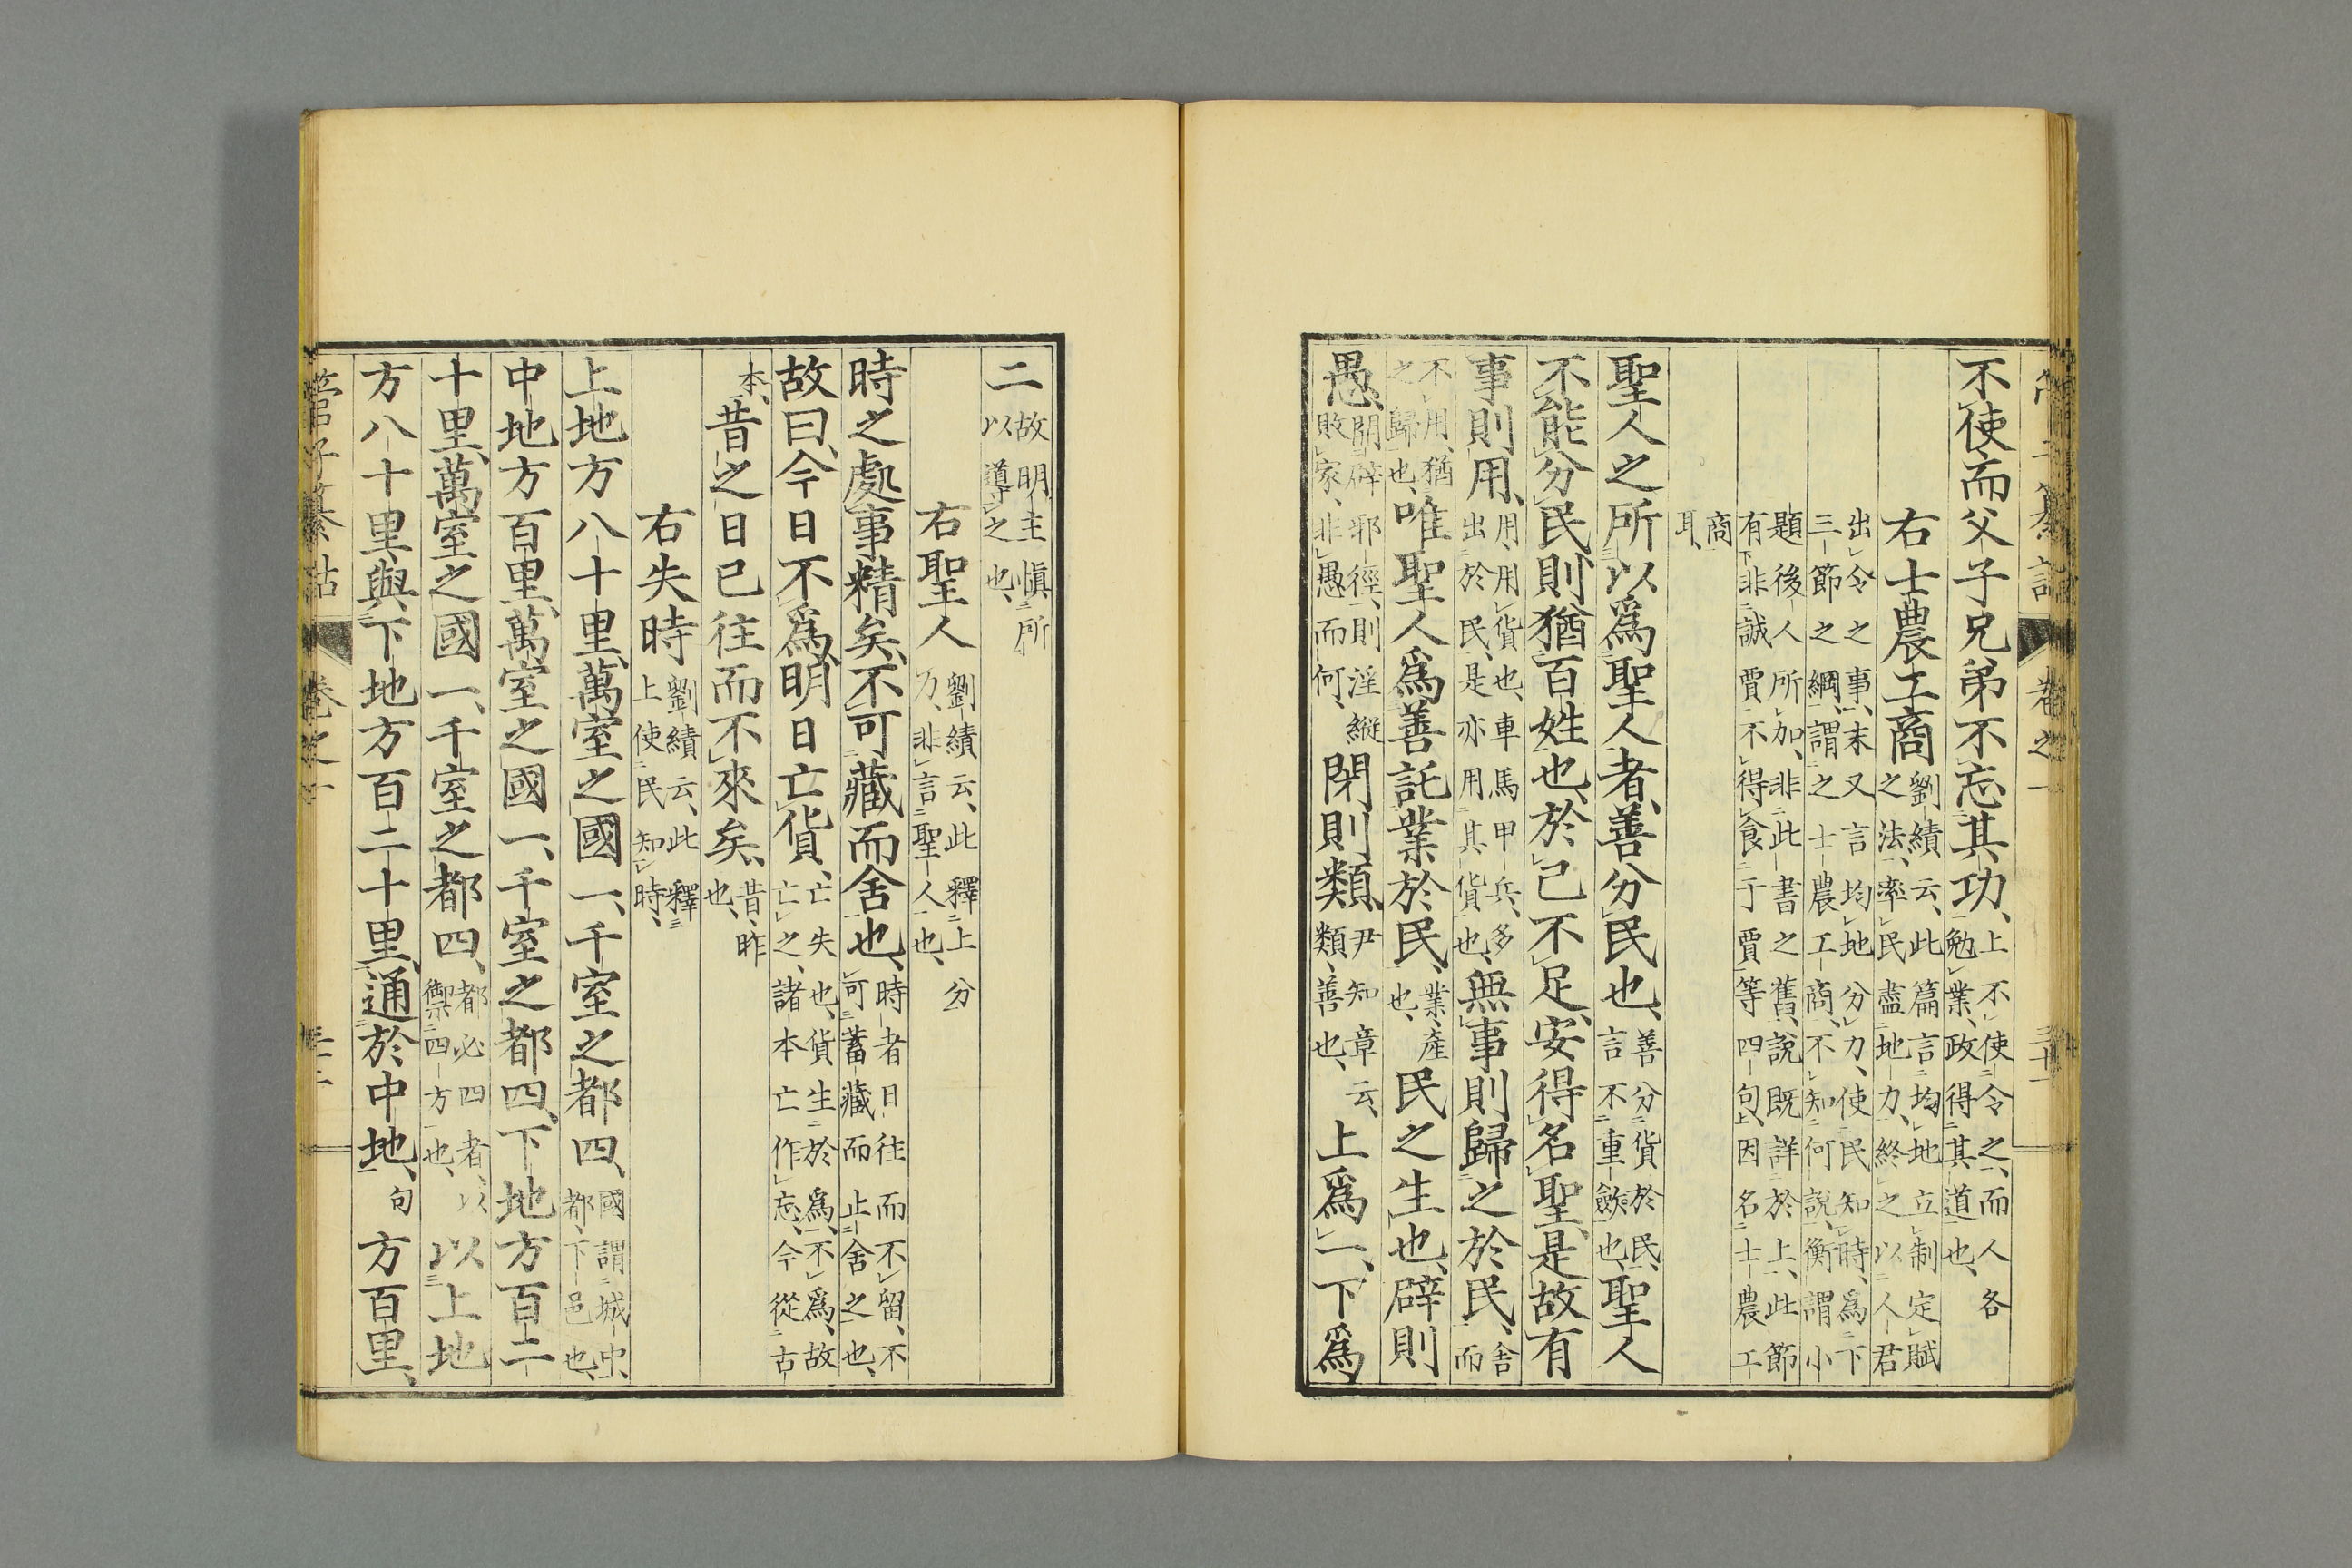 不使而父子兄弟不忘其功、上不使令之、而人各勉業、政得其道也、
右士農工商劉績云、此篇言均地立制定賦之法、率民盡地力、終之以人君
出令之事、末又言均地分力、使民知時、爲下三節之綱、謂之士農工商、不知何説、衡謂小
題後人所加、非此書之舊、説既詳於上、此節有下非誠賈不得食于賈等四句上、因名士農工
商耳、
聖人之所以爲聖人者、善分民也、善分貨於民、言不重斂也、聖人
不能分民、則猶百姓也、於己不足、安得名聖、是故有
事則用、用、用貨也、車馬甲兵、多出於民、是亦用其貨也、無事則歸之於民、舍而
不用、猶之歸也、唯聖人爲善託業於民、業、產也、民之生也、辟則
愚、開辟邪徑、則淫縱敗家、非愚而何、閉則類、尹知章云、類、善也、上爲一、下爲
管子纂詁 卷之一 三十一
二故明主愼所以導之也、
右聖人劉績云、此釋上分力、非言聖人也、
時之處事精矣、不可藏而舍也、時者日往而不留、不可蓄藏而止舍之也、
故曰、今日不爲、明日亡貨、亡失也、貨生於爲、不爲、故亡之、諸本亡作忘、今從古
本、昔之日已往而不來矣、昔、昨也、
右失時劉績云、此釋上使民知時、
上地方八十里、萬室之國一、千室之都四、國謂城中、都、下邑也、
中地方百里、萬室之國一、千室之都四、下地方百二
十里、萬室之國一、千室之都四、都必四者、以禦四方也、以上地
方八十里、與下地方百二十里、通於中地、句方百里、
管子纂詁 卷之一